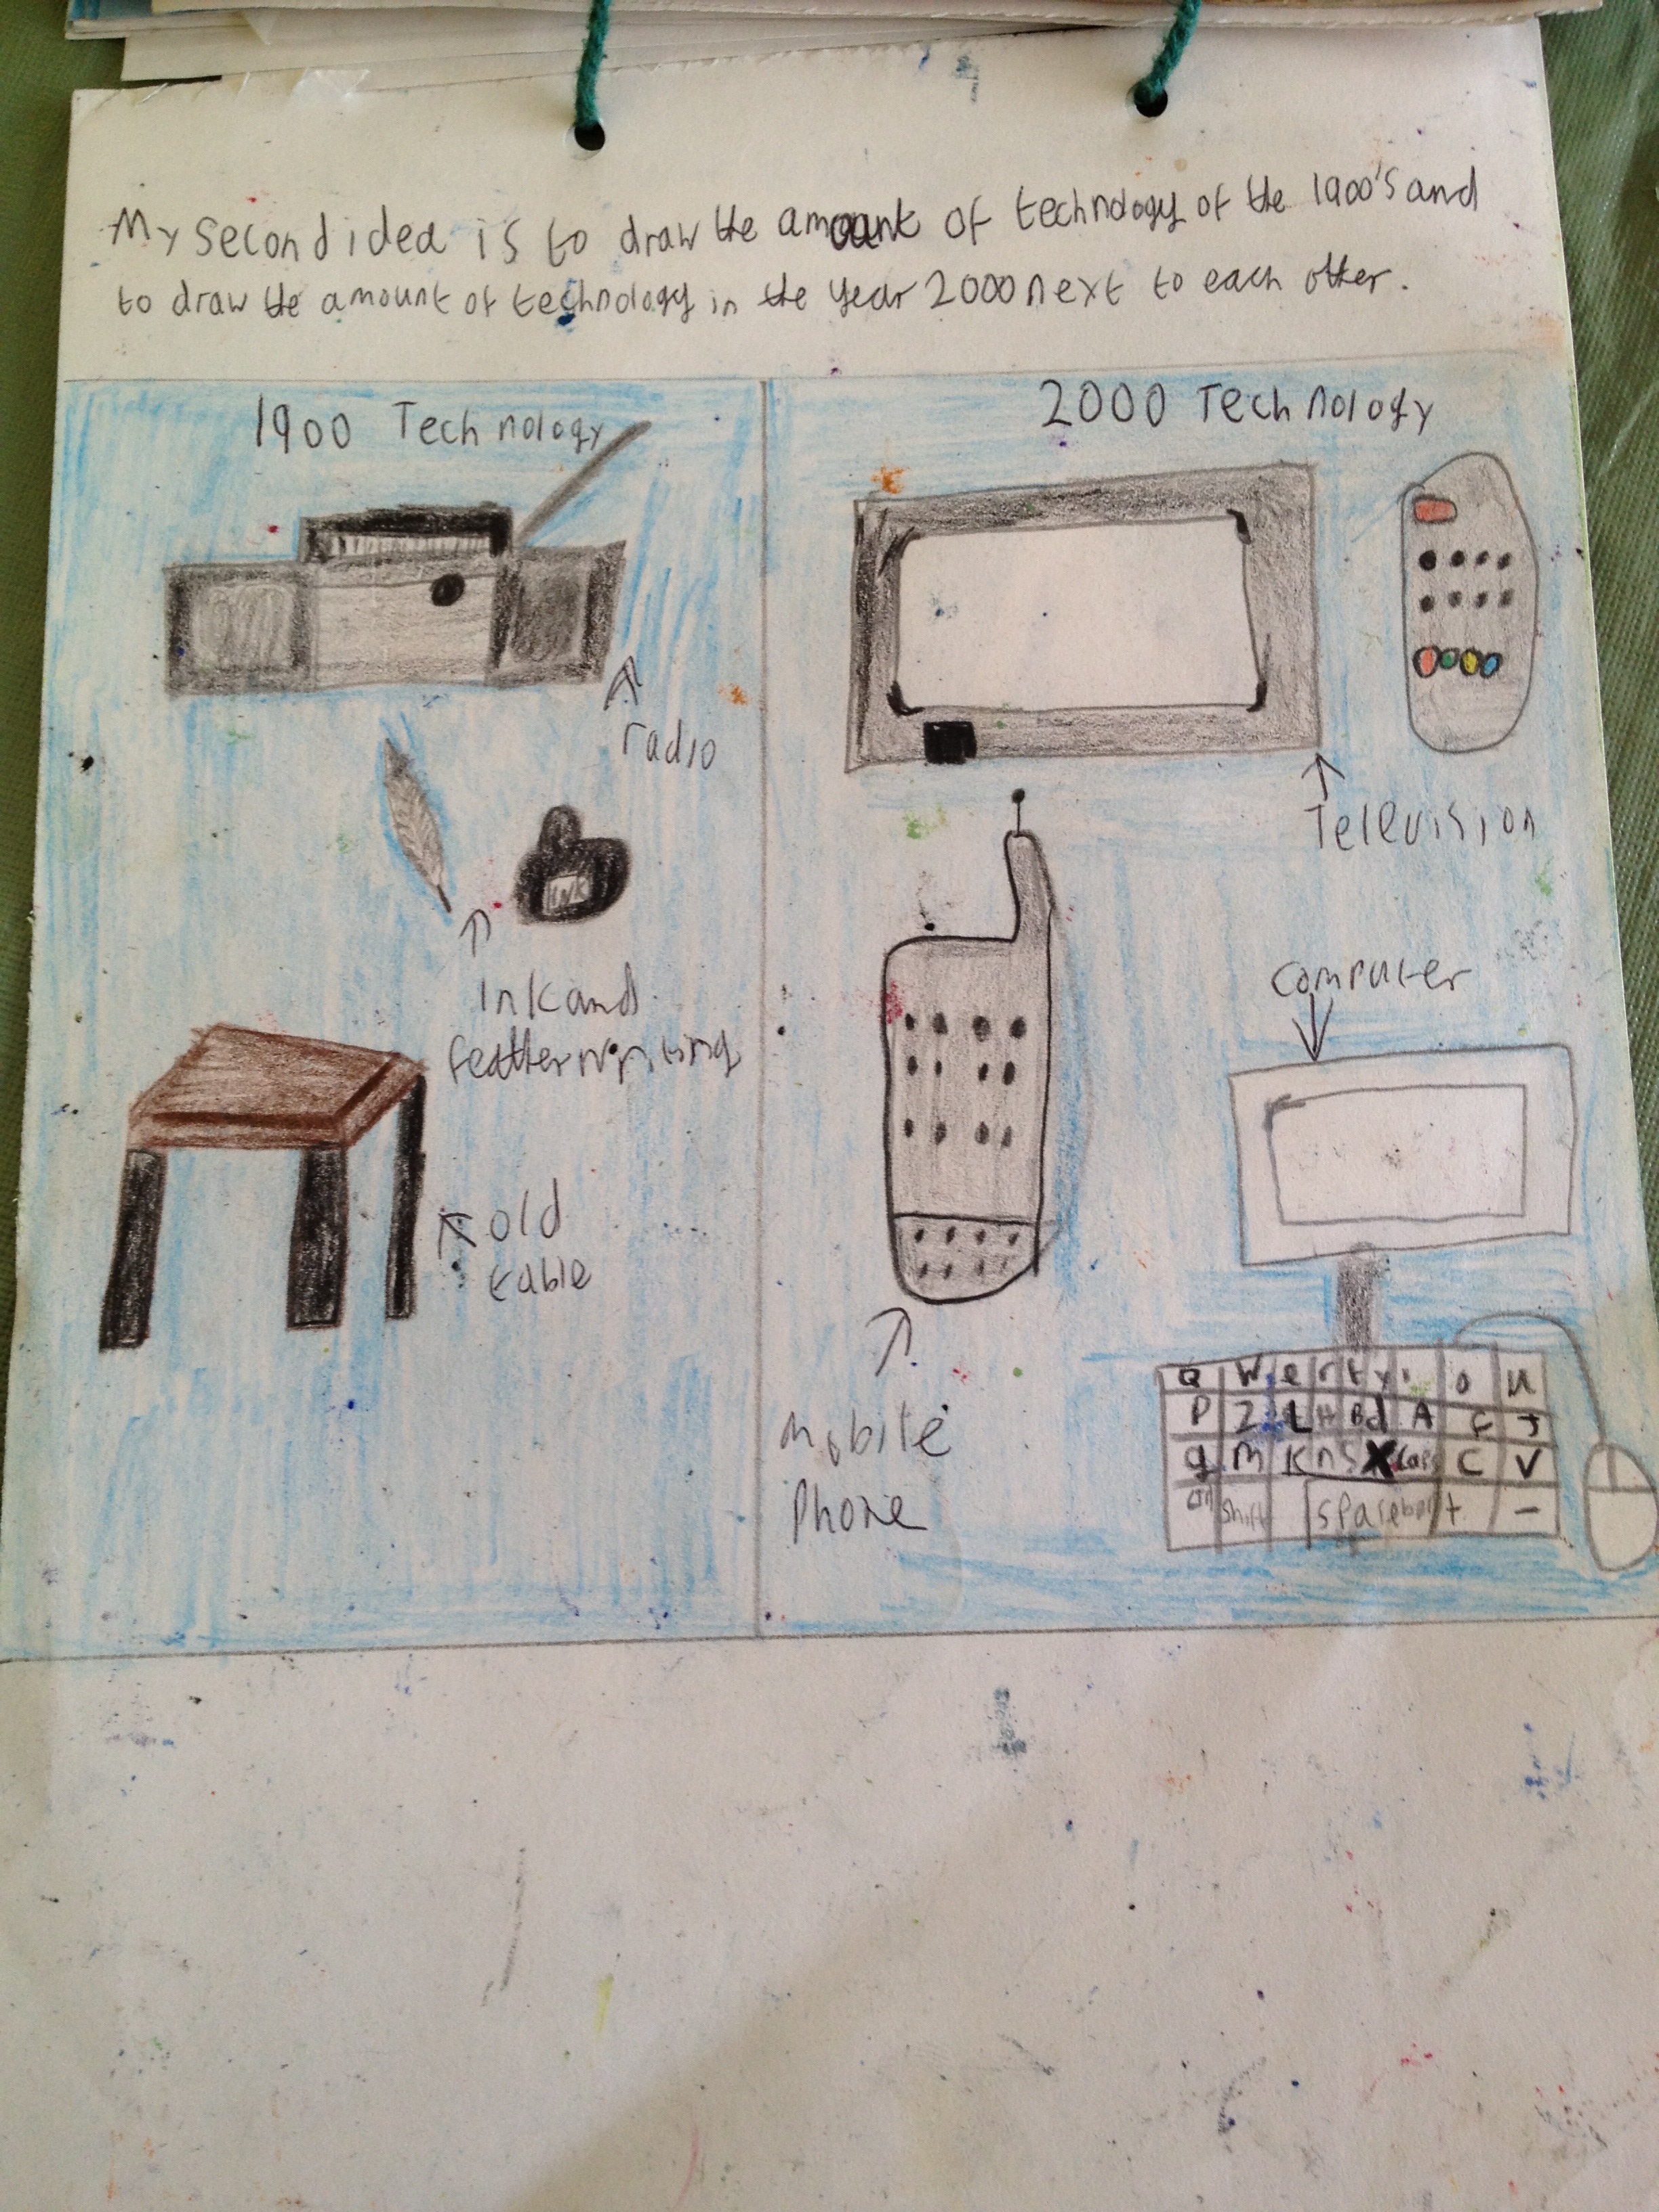 My second idea is to draw the amount of technology of the 1900's and
to draw the amount of technology in the year 2000 next to each other.
1900 Technology
radio
INK
ink and
feather writing
old
table
2000 Technology
Television
computer
Mobile
Phone
Q W e r t y i o u
P Z L H B d A F J
g M K n S X Caps C V
Ctrl Shift spacebar + -